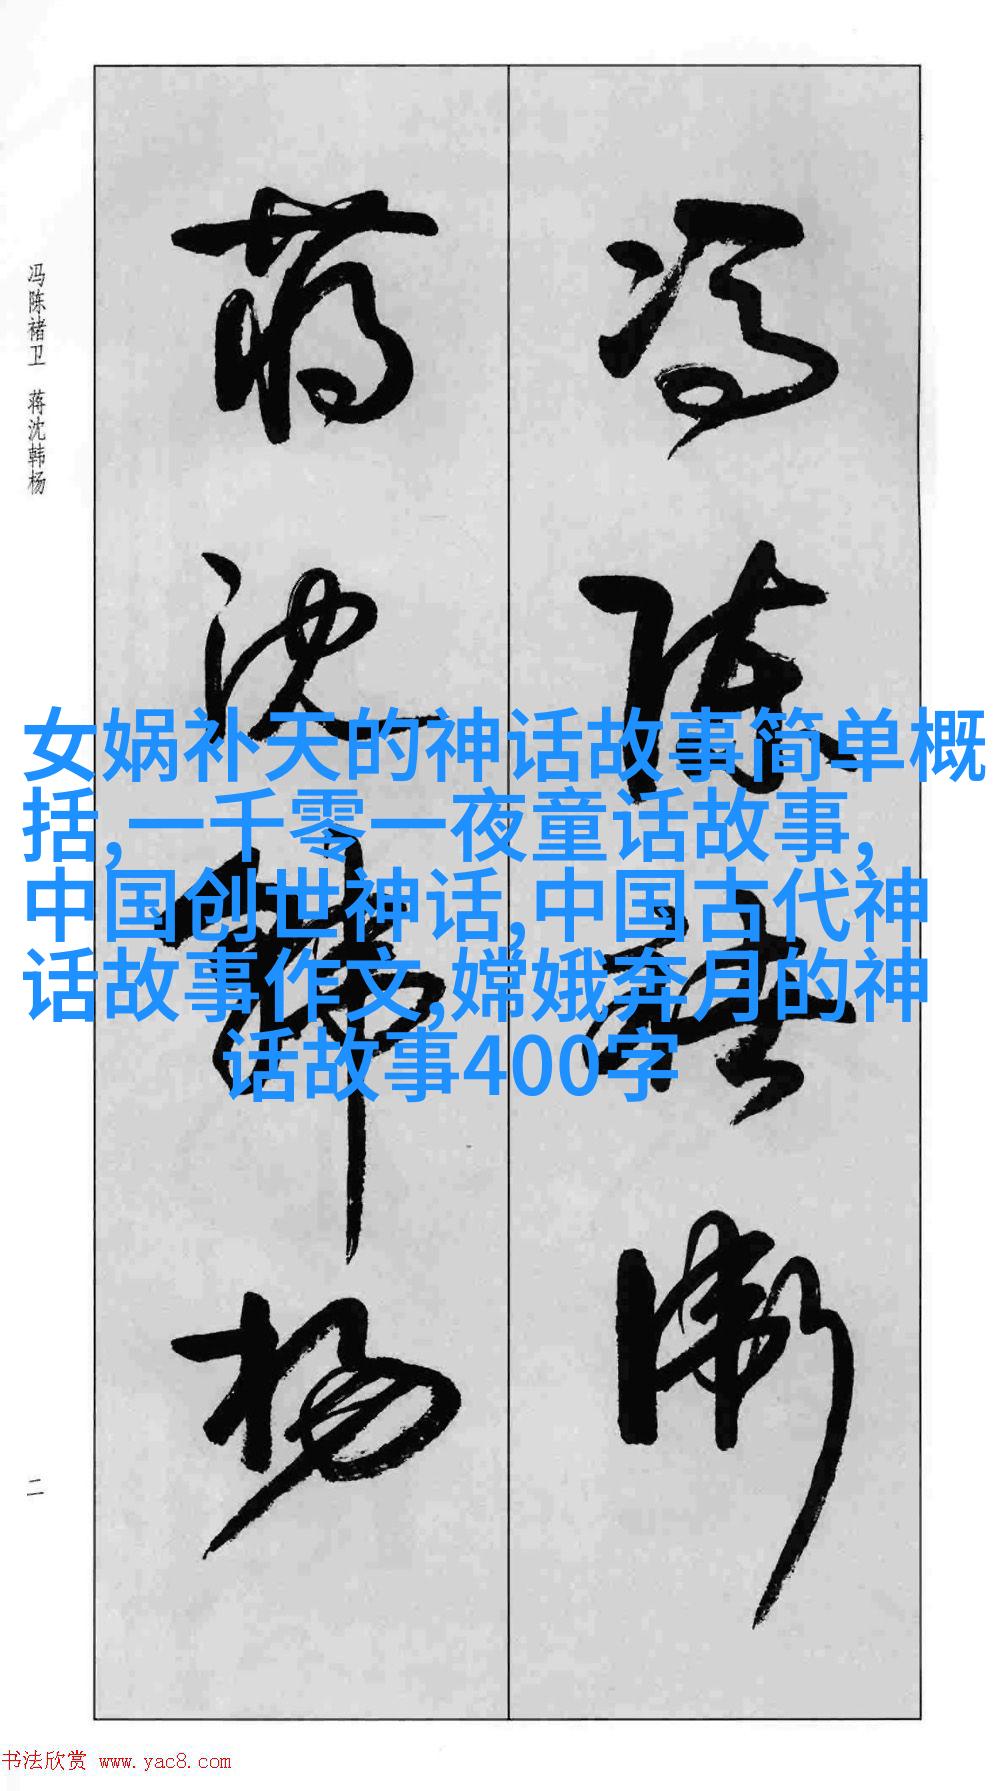 冯陈褚卫 蒋沈韩杨
冯陈褚卫
蒋沈韩杨
女娲补天的神话故事简单概
括,一千零一夜童话故事,
中国创世神话,中国古代神
话故事作文,嫦娥奔月的神
话故事400字
二
书法欣赏 www.yac8.com